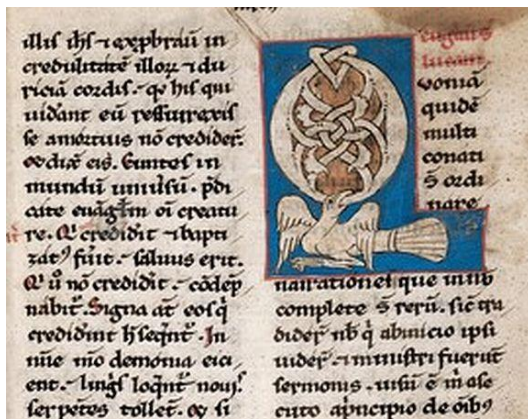 illis ihs ⁊ exprbrauit in
credulitatē illoꝝ ⁊ du
riciā cordis. qꝛ his qui
uidant eū resurrexis
se amortuis nō credider̄.
⁊ dix̄ eis. Euntes in
mundū uniūsū. p̄di
cate euāgliū oī creatu
re. Qͥ credidit ⁊ bapti
zatꝰ fuīt. saluus erit.
Qͥ ū nō credidit. cōdēp
nabit᷑. Signa aū eos q̄
credidīnt h̄ seq̄nt᷑. In
nīe mō demonia eici
ent. lingͥs loq̄nt᷑ nouis.
serpētes tollēt. ⁊ si
Quoniā
quidē
multi
conati
s̄ ordi
nare
narrationeī que ī nob̄
complete s̄ rerū. sic̄ tra
dider̄ nob̄ qͥ abinicio ipsi
uider̄. ⁊ ministri fuerūt
sermonis. uisū ē ⁊ m̄ ase
cuto aprincipio de oībꝰ